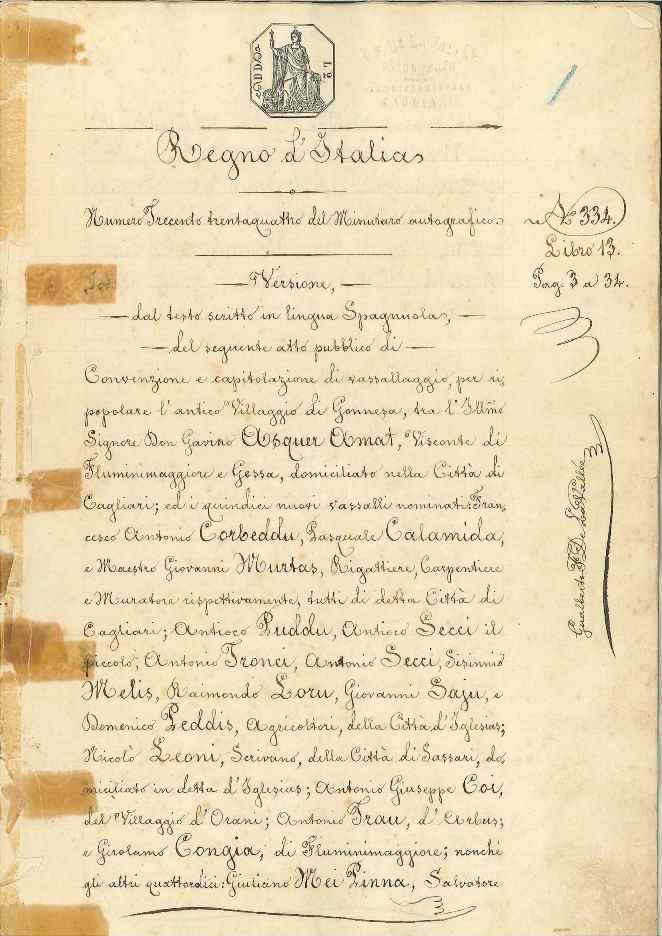 Regno d'Italia
Numero Trecento trentaquattro del Minutaro autografico
N.º 334.
Libro 13.
Pag. 3 a 34.
Versione,
dal testo scritto in lingua Spagnuola,
del seguente atto pubblico di
Convenzione e capitolazione di vassallaggio, per ri,
popolare l'antico Villaggio di Gonnesa, tra l'Illmo
Signore Don Gavino Asquer Amat, Visconte di
Fluminimaggiore e Gessa, domiciliato nella Città di
Cagliari; ed i quindici nuovi vassalli nominati: Fran,
cesco Antonio Corbeddu, Pasquale Calamida,
e Maestro Giovanni Murtas, Rigattiere, Carpentiere
e Muratore rispettivamente, tutti di detta Città di
Cagliari; Antioco Puddu, Antioco Secci il
piccolo, Antonio Tronci, Antonio Secci, Sisinnio
Melis, Raimondo Loru, Giovanni Saju, e
Domenico Peddis, Agricoltori, della Città d'Iglesias;
Nicolò Leoni, Scrivano, della Città di Sassari, do,
miciliato in detta d'Iglesias; Antonio Giuseppe Coi,
del Villaggio d'Orani; Antonio Trau, d'Arbus;
e Girolamo Congia, di Fluminimaggiore; nonchè
gli altri quattordici: Giuliano Mei Pinna, Salvatore
Gualberto